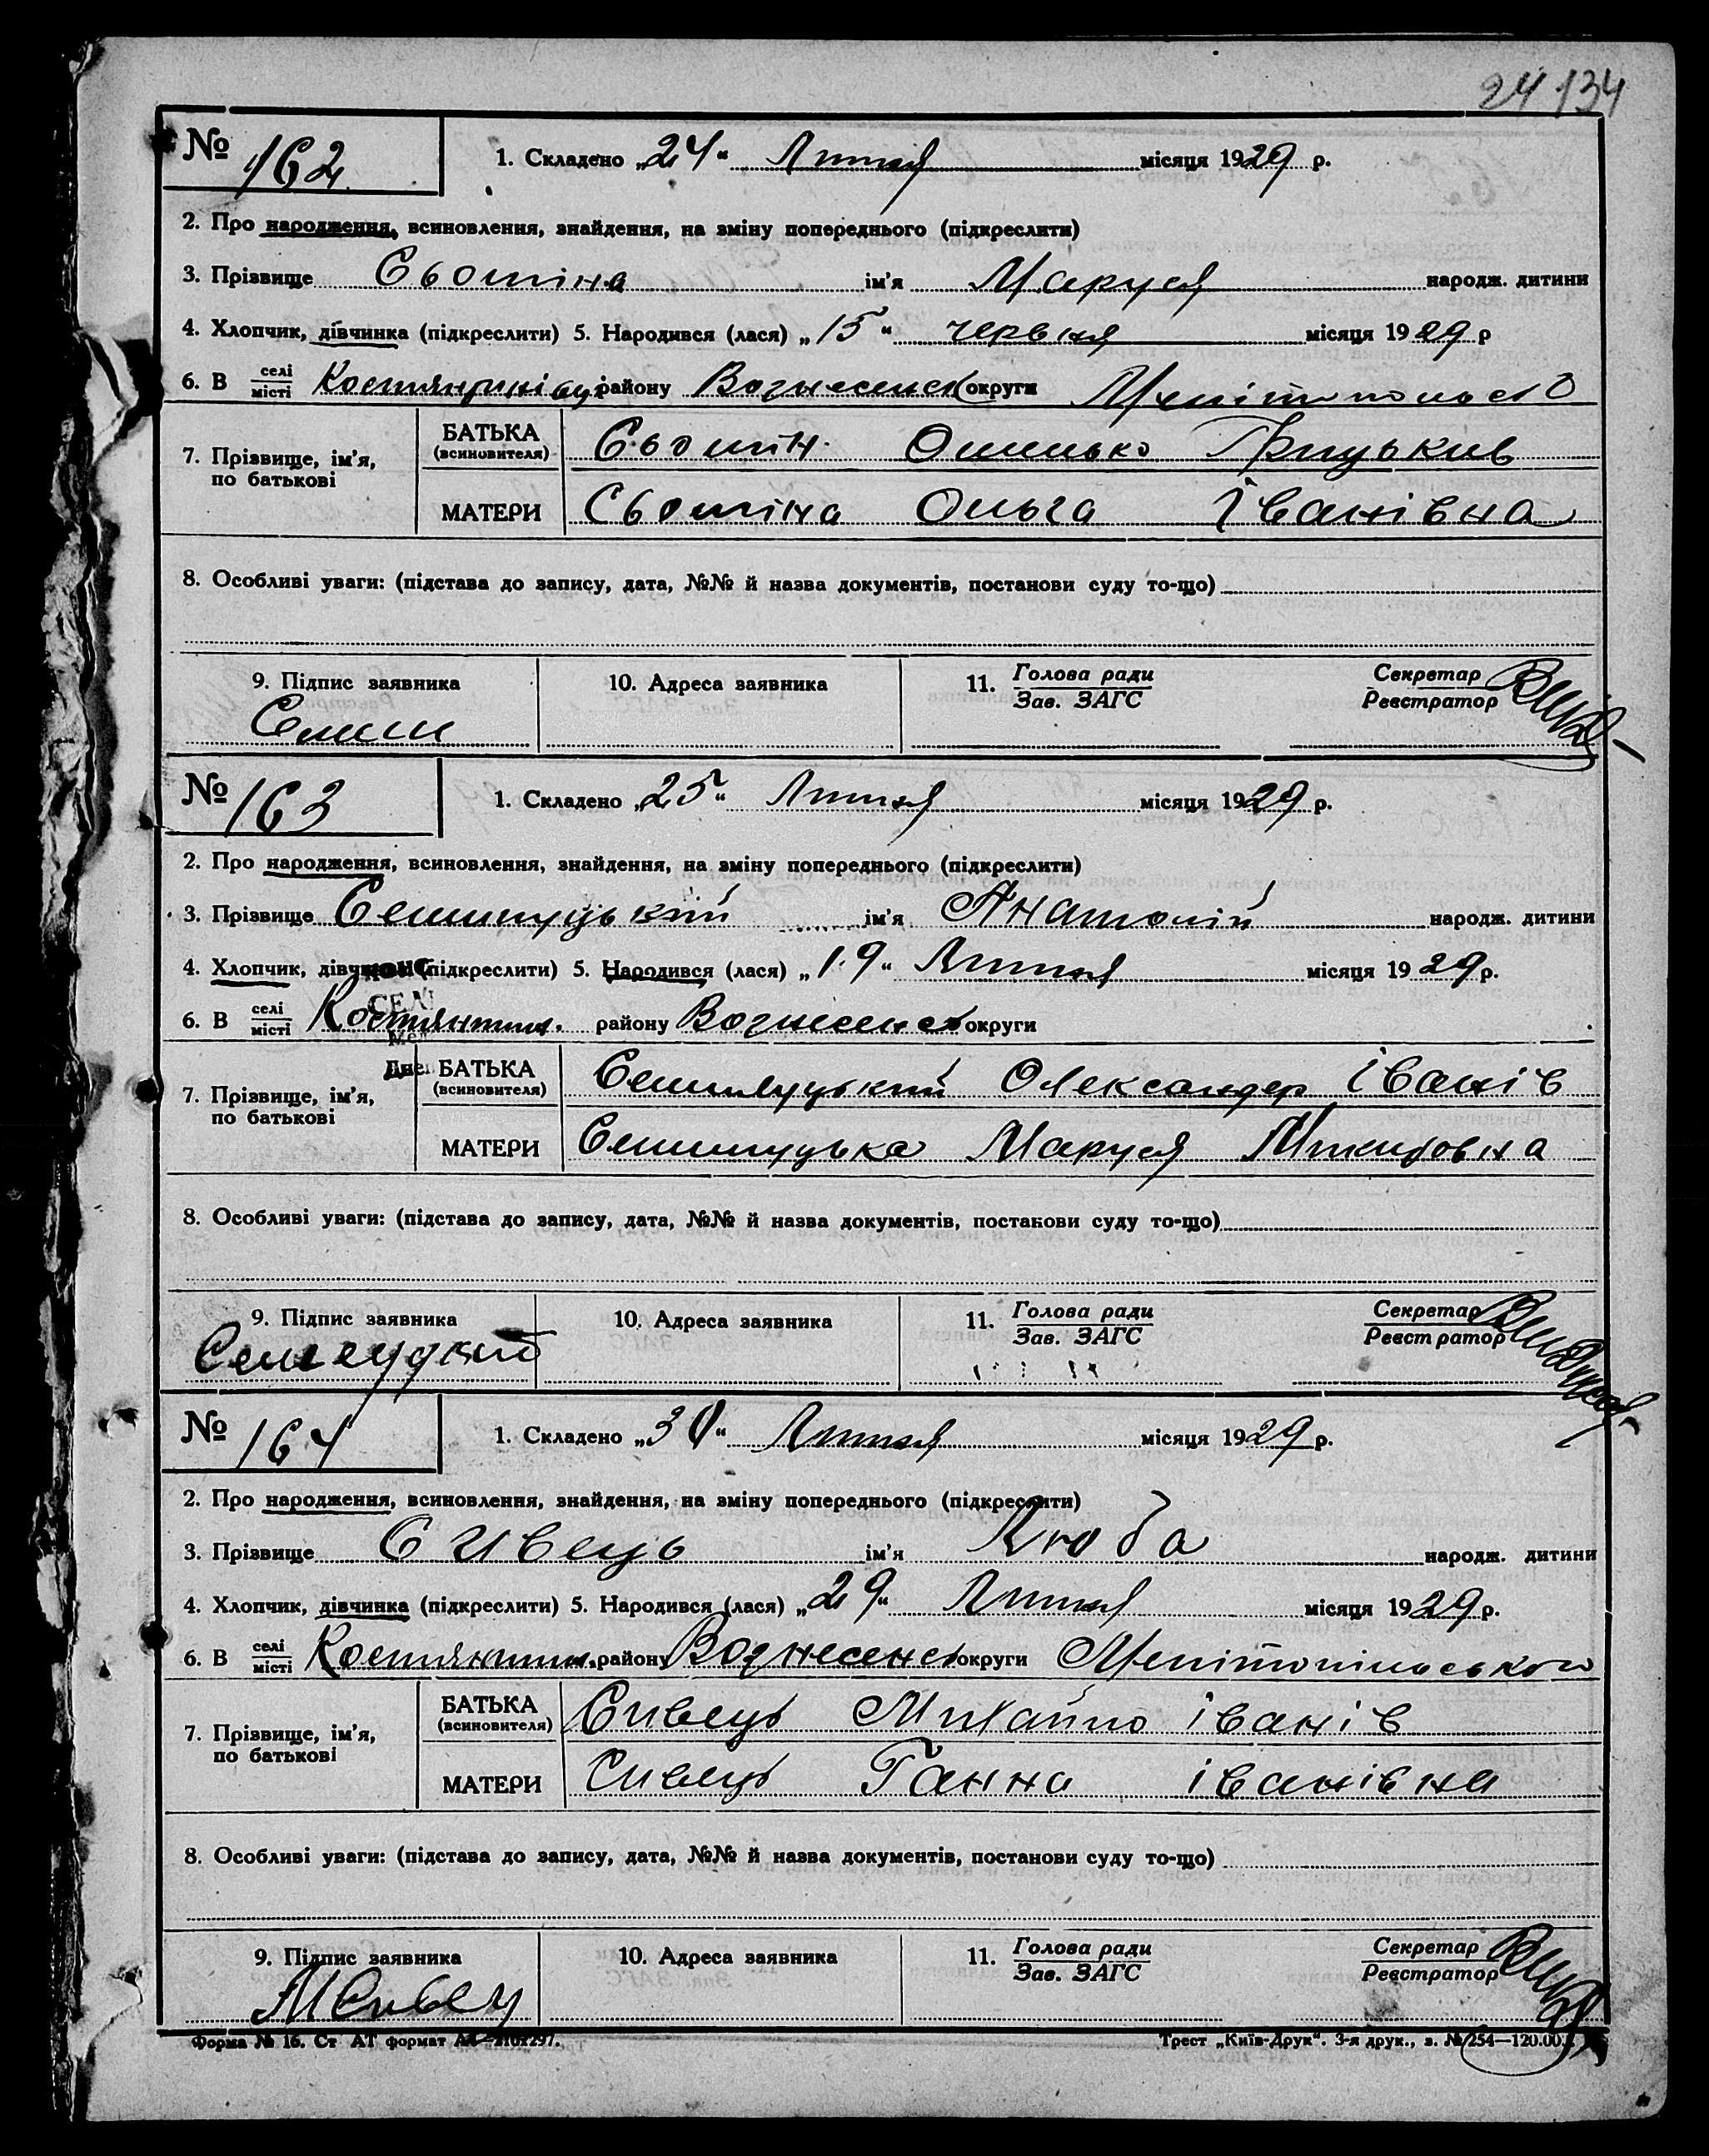 24 134
№ 162
1. Складено „24“ Липня місяця 1929 р.
2. Про народження, всиновлення, знайдення, на зміну попереднього (підкреслити)
3. Прізвище Сьоміна ім'я Маруся народж. дитини
4. Хлопчик, дівчинка (підкреслити) 5. Народився (лася) „15“ червня місяця 1929 р
6. В селі місті району Вознесенсь округи
7. Прізвище, ім'я, по батькові
БАТЬКА (всиновителя) Сьомін Омелько Грицьків
МАТЕРИ Сьоміна Ольга Іванівна
8. Особливі уваги: (підстава до запису, дата, №№ й назва документів, постанови суду то-що)
9. Підпис заявника 10. Адреса заявника 11. Голова ради Зав. ЗАГС Секретар Реєстратор
№ 163
1. Складено „25“ Липня місяця 1929 р.
2. Про народження, всиновлення, знайдення, на зміну попереднього (підкреслити)
3. Прізвище Семилуцький ім'я Анатолій народж. дитини
4. Хлопчик, дівчинка (підкреслити) 5. Народився (лася) „19“ Липня місяця 1929 р.
6. В селі місті Костянтин. району Вознесенсь округи
7. Прізвище, ім'я, по батькові
БАТЬКА (всиновителя) Семилуцький Олександер Іванів
МАТЕРИ Семилуцька Маруся Микитовна
8. Особливі уваги: (підстава до запису, дата, №№ й назва документів, постанови суду то-що)
9. Підпис заявника 10. Адреса заявника 11. Голова ради Зав. ЗАГС Секретар Реєстратор
Семилуцкий
№ 164
1. Складено „30“ Липня місяця 1929 р.
2. Про народження, всиновлення, знайдення, на зміну попереднього (підкреслити)
3. Прізвище Сивець ім'я Люба народж. дитини
4. Хлопчик, дівчинка (підкреслити) 5. Народився (лася) „29“ Липня місяця 1929 р.
6. В селі місті Костянтин. району Вознесенсь округи Мелітопільської
7. Прізвище, ім'я, по батькові
БАТЬКА (всиновителя) Сивець Михайло іванів
МАТЕРИ Сивець Ганна іванівна
8. Особливі уваги: (підстава до запису, дата, №№ й назва документів, постанови суду то-що)
9. Підпис заявника 10. Адреса заявника 11. Голова ради Зав. ЗАГС Секретар Реєстратор
МСивец
Форма № 16. Ст АТ формат А4—210х297. Трест „Київ-Друк“. 3-я друк., з. № 254—120.00